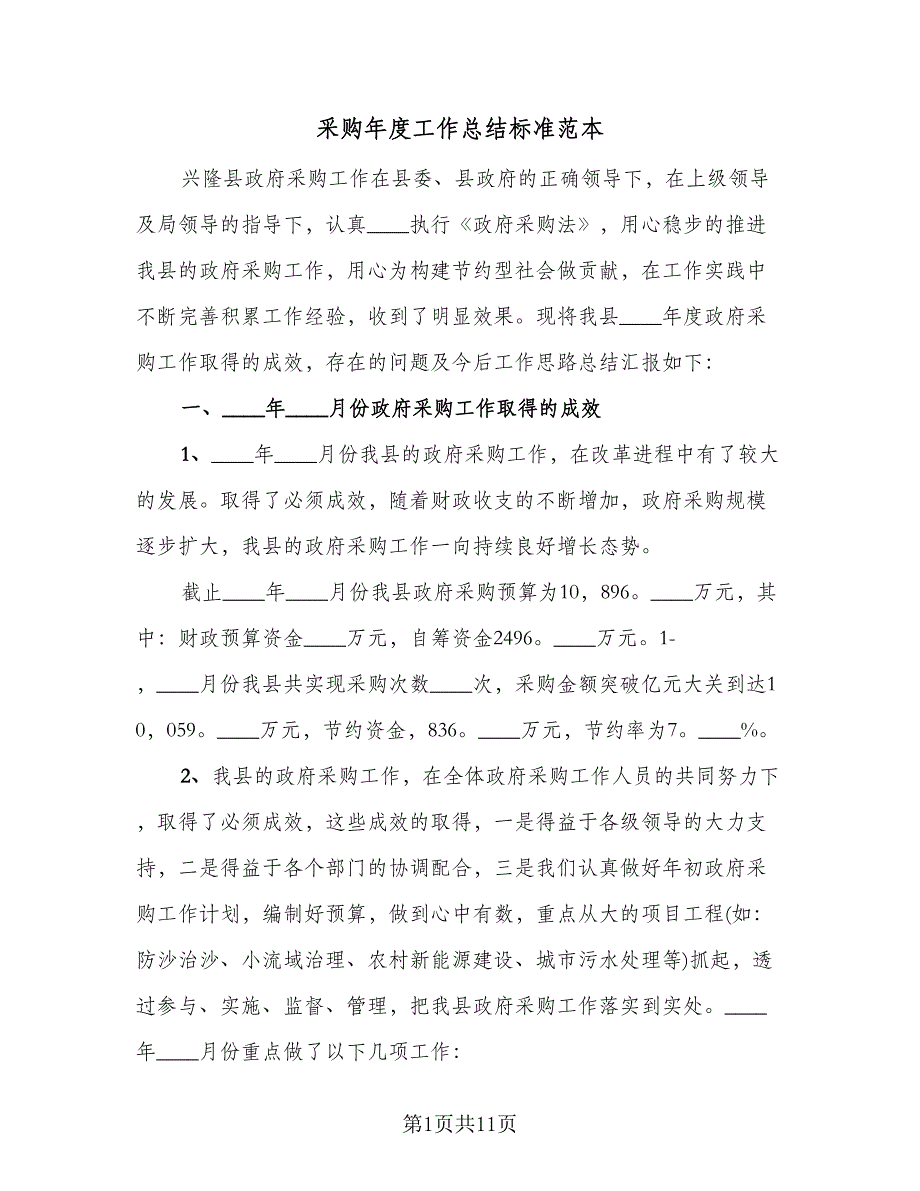 采购年度工作总结标准范本
兴隆县政府采购工作在县委、县政府的正确领导下，在上级领导
及局领导的指导下，认真____执行《政府采购法》，用心稳步的推进
我县的政府采购工作，用心为构建节约型社会做贡献，在工作实践中
不断完善积累工作经验，收到了明显效果。现将我县____年度政府采
购工作取得的成效，存在的问题及今后工作思路总结汇报如下：
一、____年____月份政府采购工作取得的成效
1、____年____月份我县的政府采购工作，在改革进程中有了较大
的发展。取得了必须成效，随着财政收支的不断增加，政府采购规模
逐步扩大，我县的政府采购工作一向持续良好增长态势。
截止____年____月份我县政府采购预算为10，896。____万元，其
中：财政预算资金____万元，自筹资金2496。____万元。1-
，____月份我县共实现采购次数____次，采购金额突破亿元大关到达1
0，059。____万元，节约资金，836。____万元，节约率为7。____%。
2、我县的政府采购工作，在全体政府采购工作人员的共同努力下
，取得了必须成效，这些成效的取得，一是得益于各级领导的大力支
持，二是得益于各个部门的协调配合，三是我们认真做好年初政府采
购工作计划，编制好预算，做到心中有数，重点从大的项目工程(如：
防沙治沙、小流域治理、农村新能源建设、城市污水处理等)抓起，透
过参与、实施、监督、管理，把我县政府采购工作落实到实处。____
年____月份重点做了以下几项工作：
第1页共11页